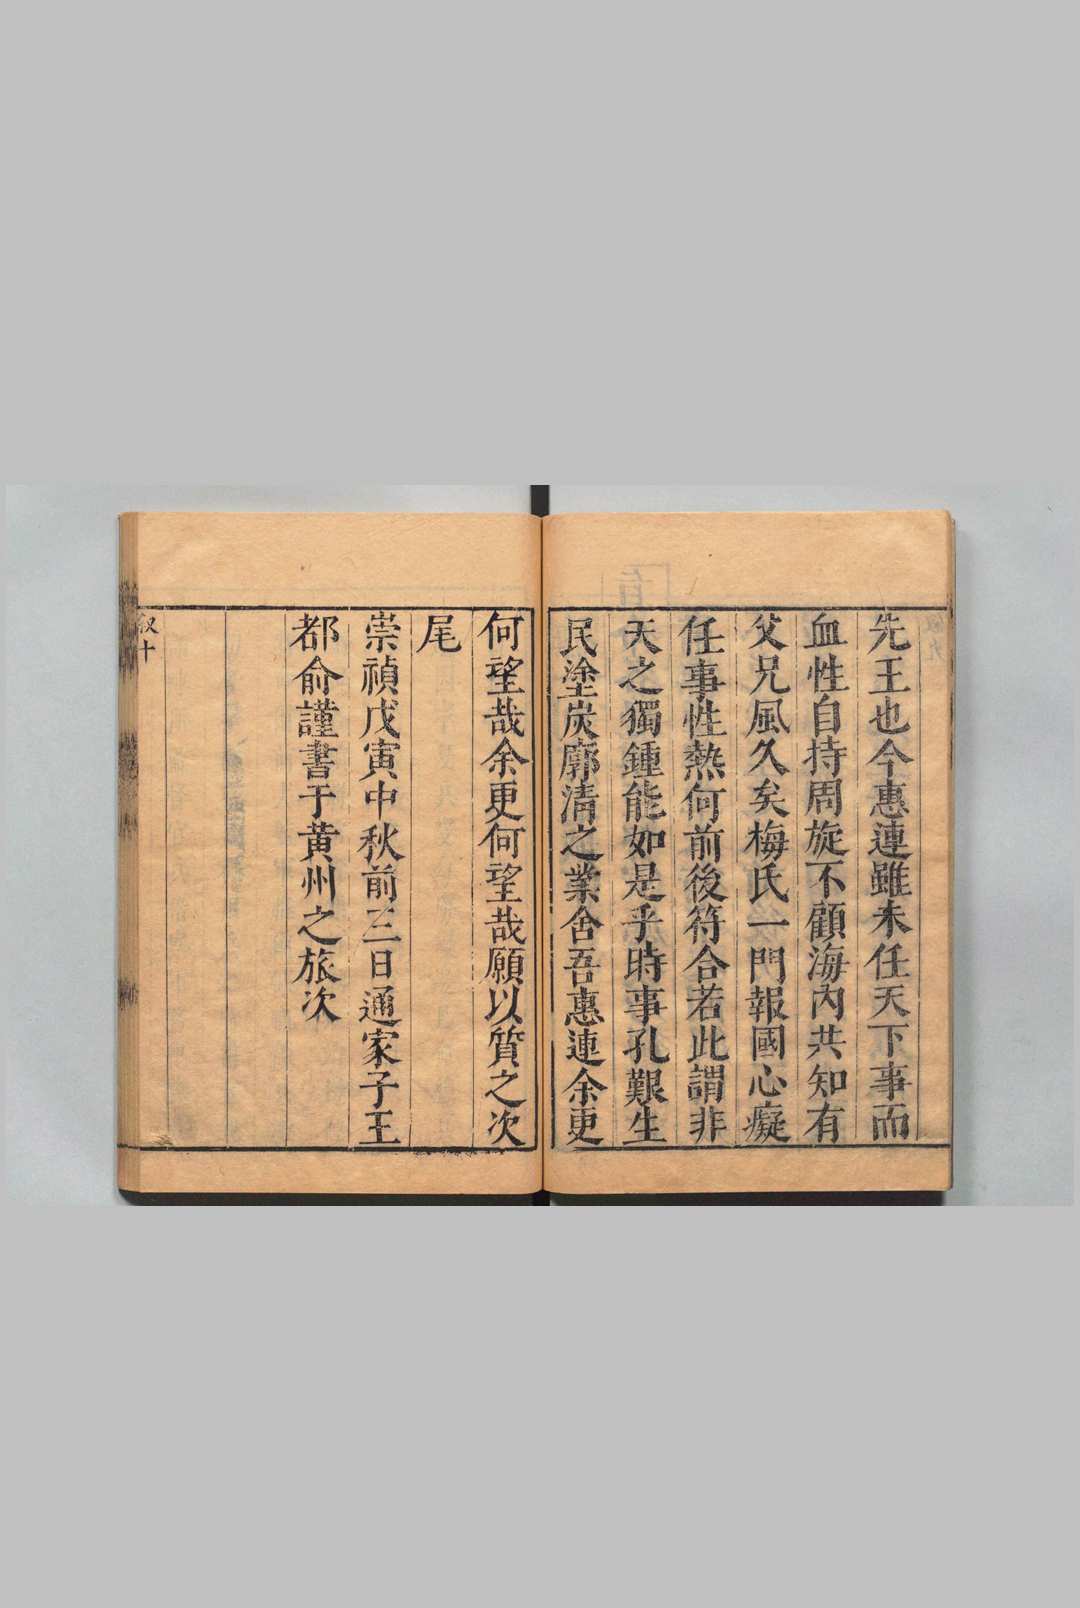 先王也今惠連雖未任天下事而
血性自持周旋不顧海內共知有
父兄風久矣梅氏一門報國心癡
任事性熱何前後符合若此謂非
天之獨鍾能如是乎時事孔艱生
民塗炭廓清之業舍吾惠連余更
何望哉余更何望哉願以質之次
尾
崇禎戊寅中秋前三日通家子王
都俞謹書于黃州之旅次
叙十